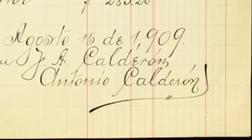 $ 283.20
Agosto 15 de 1909.
J. A. Calderón
Antonio Calderón